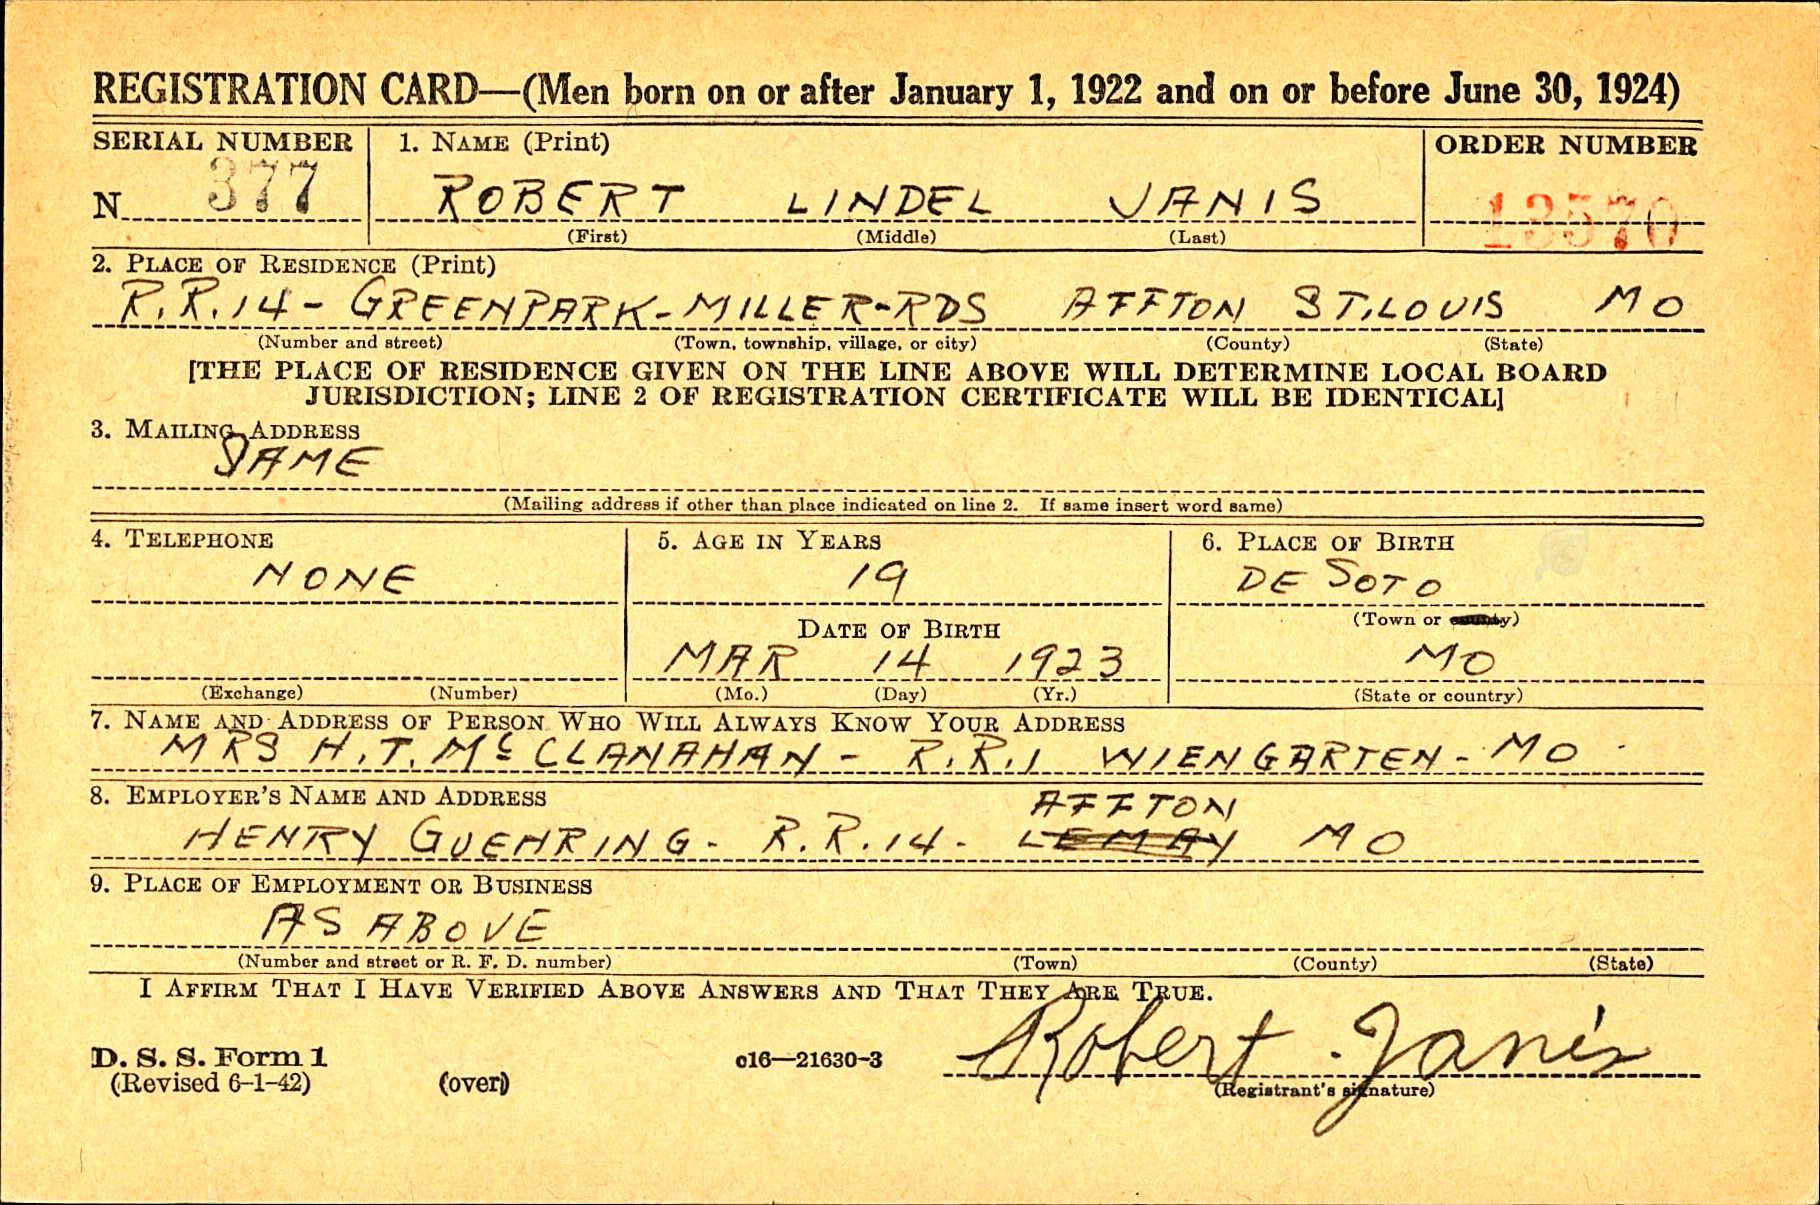 REGISTRATION CARD—(Men born on or after January 1, 1922 and on or before June 30, 1924)
SERIAL NUMBER 1. NAME (Print) ORDER NUMBER
N 377 ROBERT LINDEL JANIS 13570
(First) (Middle) (Last)
2. PLACE OF RESIDENCE (Print)
R.R.14- GREENPARK-MILLER-RDS AFFTON ST.LOUIS MO
(Number and street) (Town, township, village, or city) (County) (State)
[THE PLACE OF RESIDENCE GIVEN ON THE LINE ABOVE WILL DETERMINE LOCAL BOARD
JURISDICTION; LINE 2 OF REGISTRATION CERTIFICATE WILL BE IDENTICAL]
3. MAILING ADDRESS
SAME
(Mailing address if other than place indicated on line 2. If same insert word same)
4. TELEPHONE 5. AGE IN YEARS 6. PLACE OF BIRTH
NONE 19 DE SOTO
(Town or county)
DATE OF BIRTH
MAR 14 1923 MO
(Exchange) (Number) (Mo.) (Day) (Yr.) (State or country)
7. NAME AND ADDRESS OF PERSON WHO WILL ALWAYS KNOW YOUR ADDRESS
MRS H.T. McCLANAHAN - R.R.1 WIENGARTEN- MO
8. EMPLOYER'S NAME AND ADDRESS
AFFTON
HENRY GUEHRING- R.R.14- LEMAY MO
9. PLACE OF EMPLOYMENT OR BUSINESS
AS ABOVE
(Number and street or R. F. D. number) (Town) (County) (State)
I AFFIRM THAT I HAVE VERIFIED ABOVE ANSWERS AND THAT THEY ARE TRUE.
Robert Janis
D. S. S. Form 1 c16—21630-3
(Revised 6-1-42) (over) (Registrant's signature)